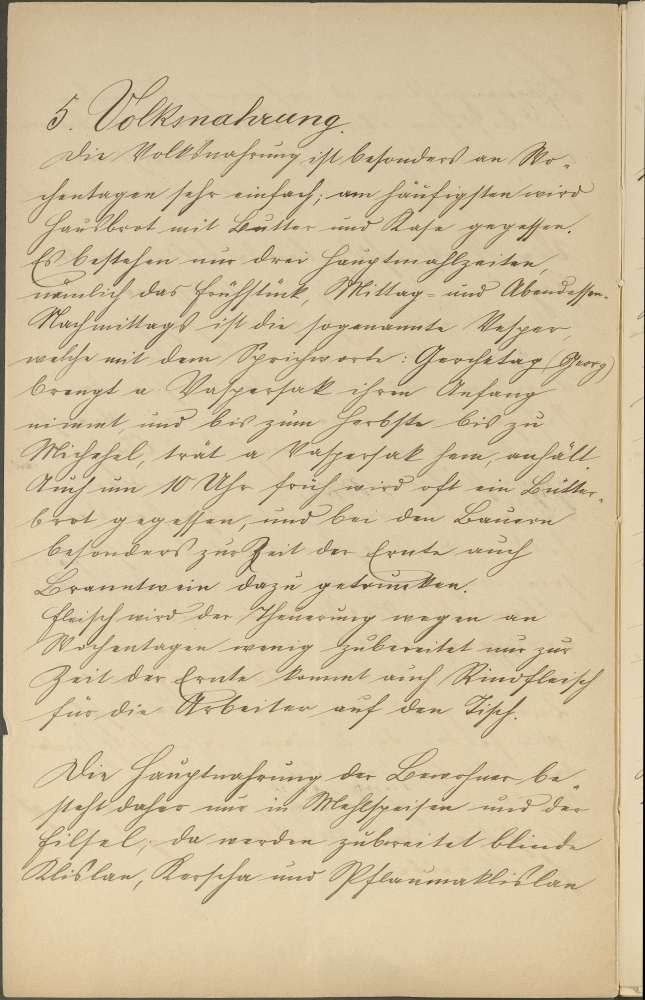 5. Volksnahrung.
Die Volksnahrung ist besonders an Wo-
chentagen sehr einfach; am häufigsten wird
Hausbrot mit Butter und Kase gegessen.
Es bestehen nur drei Hauptmahlzeiten,
nämlich das Frühstück, Mittag- und Abendessen.
Nachmittags ist die sogenannte Vesper,
welche mit dem Sprichworte: Gerchatag (Georg)
brengt a Vaspersak ihren Anfang
nimmt, und bis zum Herbste bis zu
Michehel, trät a Vaspersak hem, anhält.
Auch um 10 Uhr früh wird oft ein Butter-
brot gegessen, und bei den Bauern
besonders zur Zeit der Ernte auch
Branntwein dazu getruncken.
Fleisch wird der Theuerung wegen an
Wochentagen wenig zubereitet nur zur
Zeit der Ernte kommt auch Rindfleisch
für die Arbeiter auf den Tisch.
Die Hauptnahrung der Bewohner be-
steht daher nur in Mehlspeisen und der
Filsel, da werden zubereitet blinde
Klislan, Kerscha und Pflaumaklislan